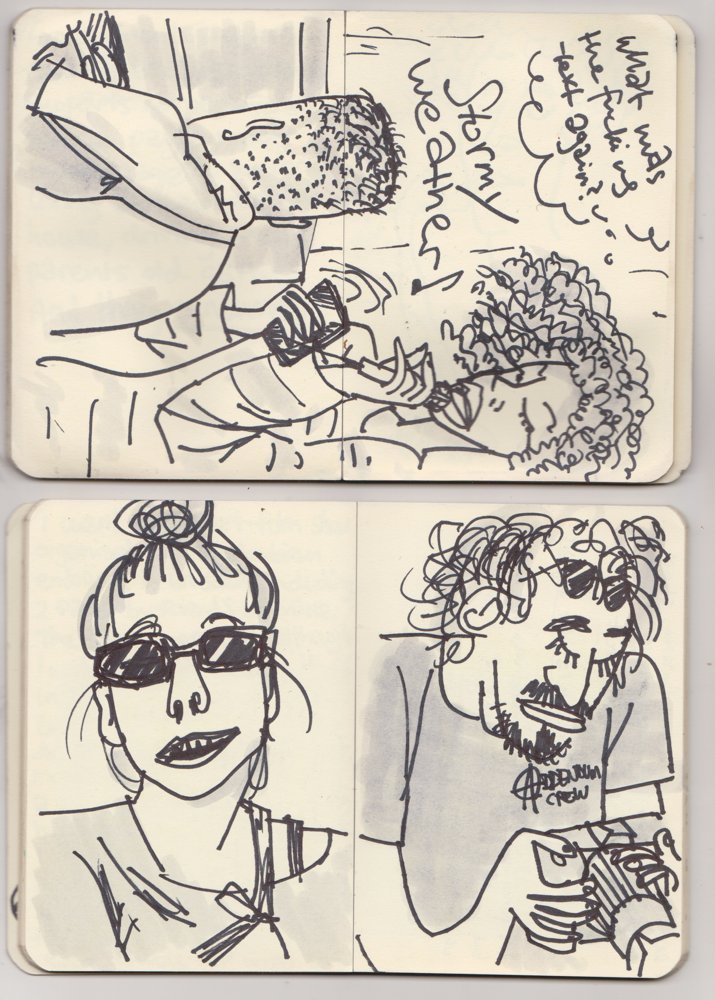 what was
the fucking
text again?
Stormy
weather!
CREW